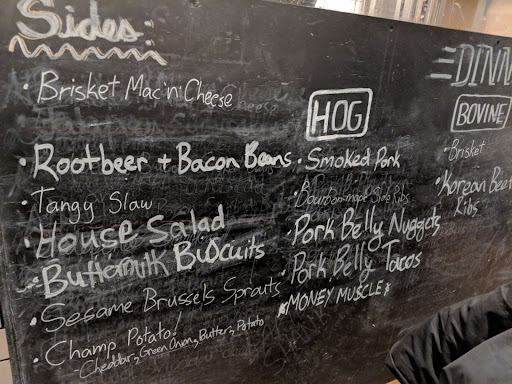 Sides
• Brisket Mac 'n' Cheese
• Rootbeer + Bacon Beans
• Tangy Slaw
• House Salad
• Buttermilk Biscuits
• Sesame Brussels Sprouts
• Champ Potato!
- Cheddar, Green Onion, Butter, Potato
HOG
• Smoked Pork
• Bourbon-maple Side Ribs
• Pork Belly Nuggets
• Pork Belly Tacos
*MONEY MUSCLE*
DINN
BOVINE
• Brisket
• Korean Beef
Ribs